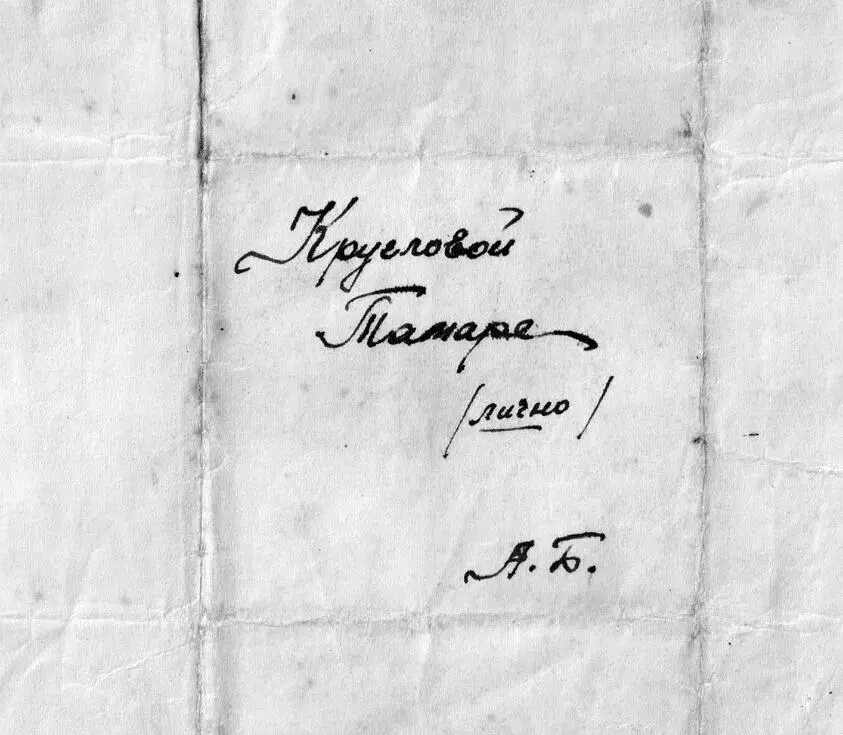 Кругловой
Тамаре
/лично/
А. Б.